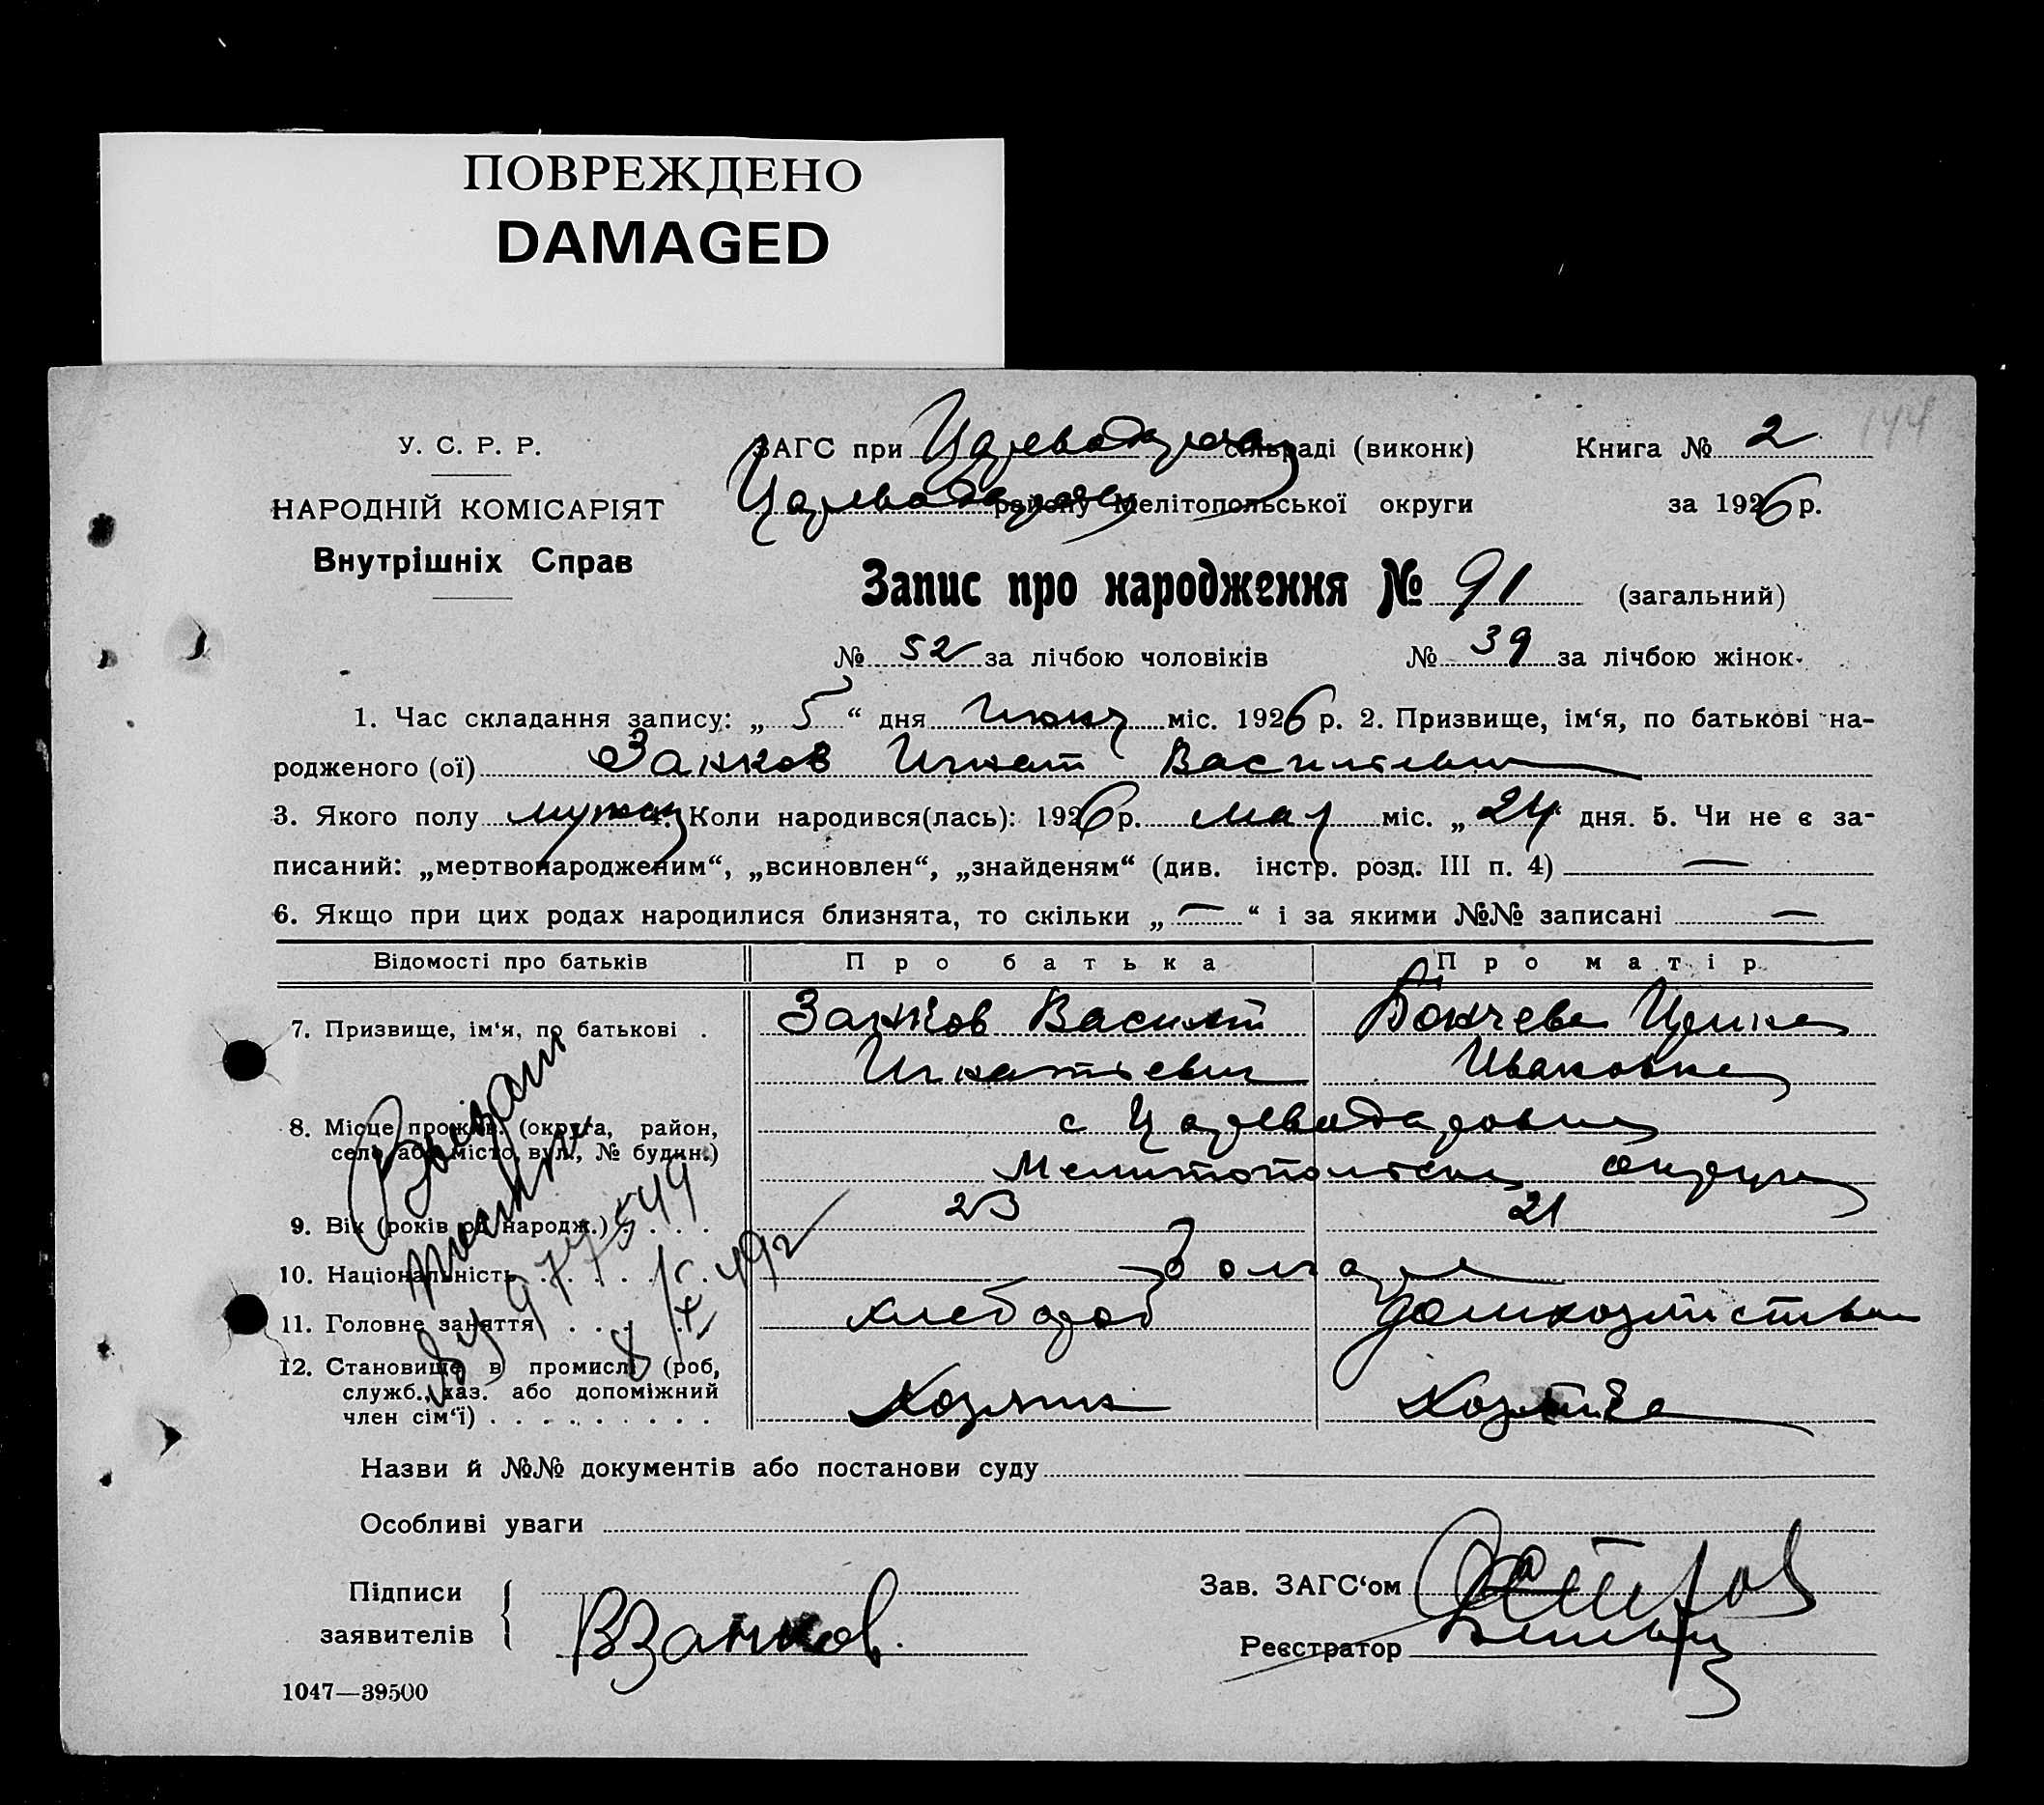 ПОВРЕЖДЕНО
DAMAGED
144
У. С. Р. Р.
НАРОДНІЙ КОМІСАРІЯТ
Внутрішніх Справ
ЗАГС при сільраді (виконк) Книга № 2
району Мелітопольської округи за 1926 р.
Запис про народження № 91 (загальний)
№ 52 за лічбою чоловіків № 39 за лічбою жінок
1. Час складання запису: „ 5 “ дня Июня міс. 1926 р. 2. Призвище, ім‘я, по батькові на-
родженого (ої) Занков Игнат Васильевич
3. Якого полу мужск 4. Коли народився(лась): 1926 р. мая міс. „ 24 “ дня. 5. Чи не є за-
писаний: „мертвонародженим“, „всиновлен“, „знайденям“ (див. інстр. розд. III п. 4) —
6. Якщо при цих родах народилися близнята, то скільки „ — “ і за якими №№ записані —
Відомості про батьків Про батька Про матір
7. Призвище, ім‘я, по батькові . Занков Василий
Игнатьевич Ивановна
8. Місце прожив. (округа, район, с Царевадаровка
село або місто, вул., № будин.) Мелитопольск округа
9. Вік (років од народж.) . . . . 23 21
10. Національність . . . . . . . болгаре
11. Головне заняття . . . . . . хлебороб домхозяйства
12. Становище в промислі (роб,
служб., хаз. або допоміжний Хозяин Хозяйка
член сім‘ї) . . . . . . . . .
Назви й №№ документів або постанови суду
Особливі уваги
Підписи Зав. ЗАГС‘ом
заявителів ВЗанков. Реєстратор
1047—39500